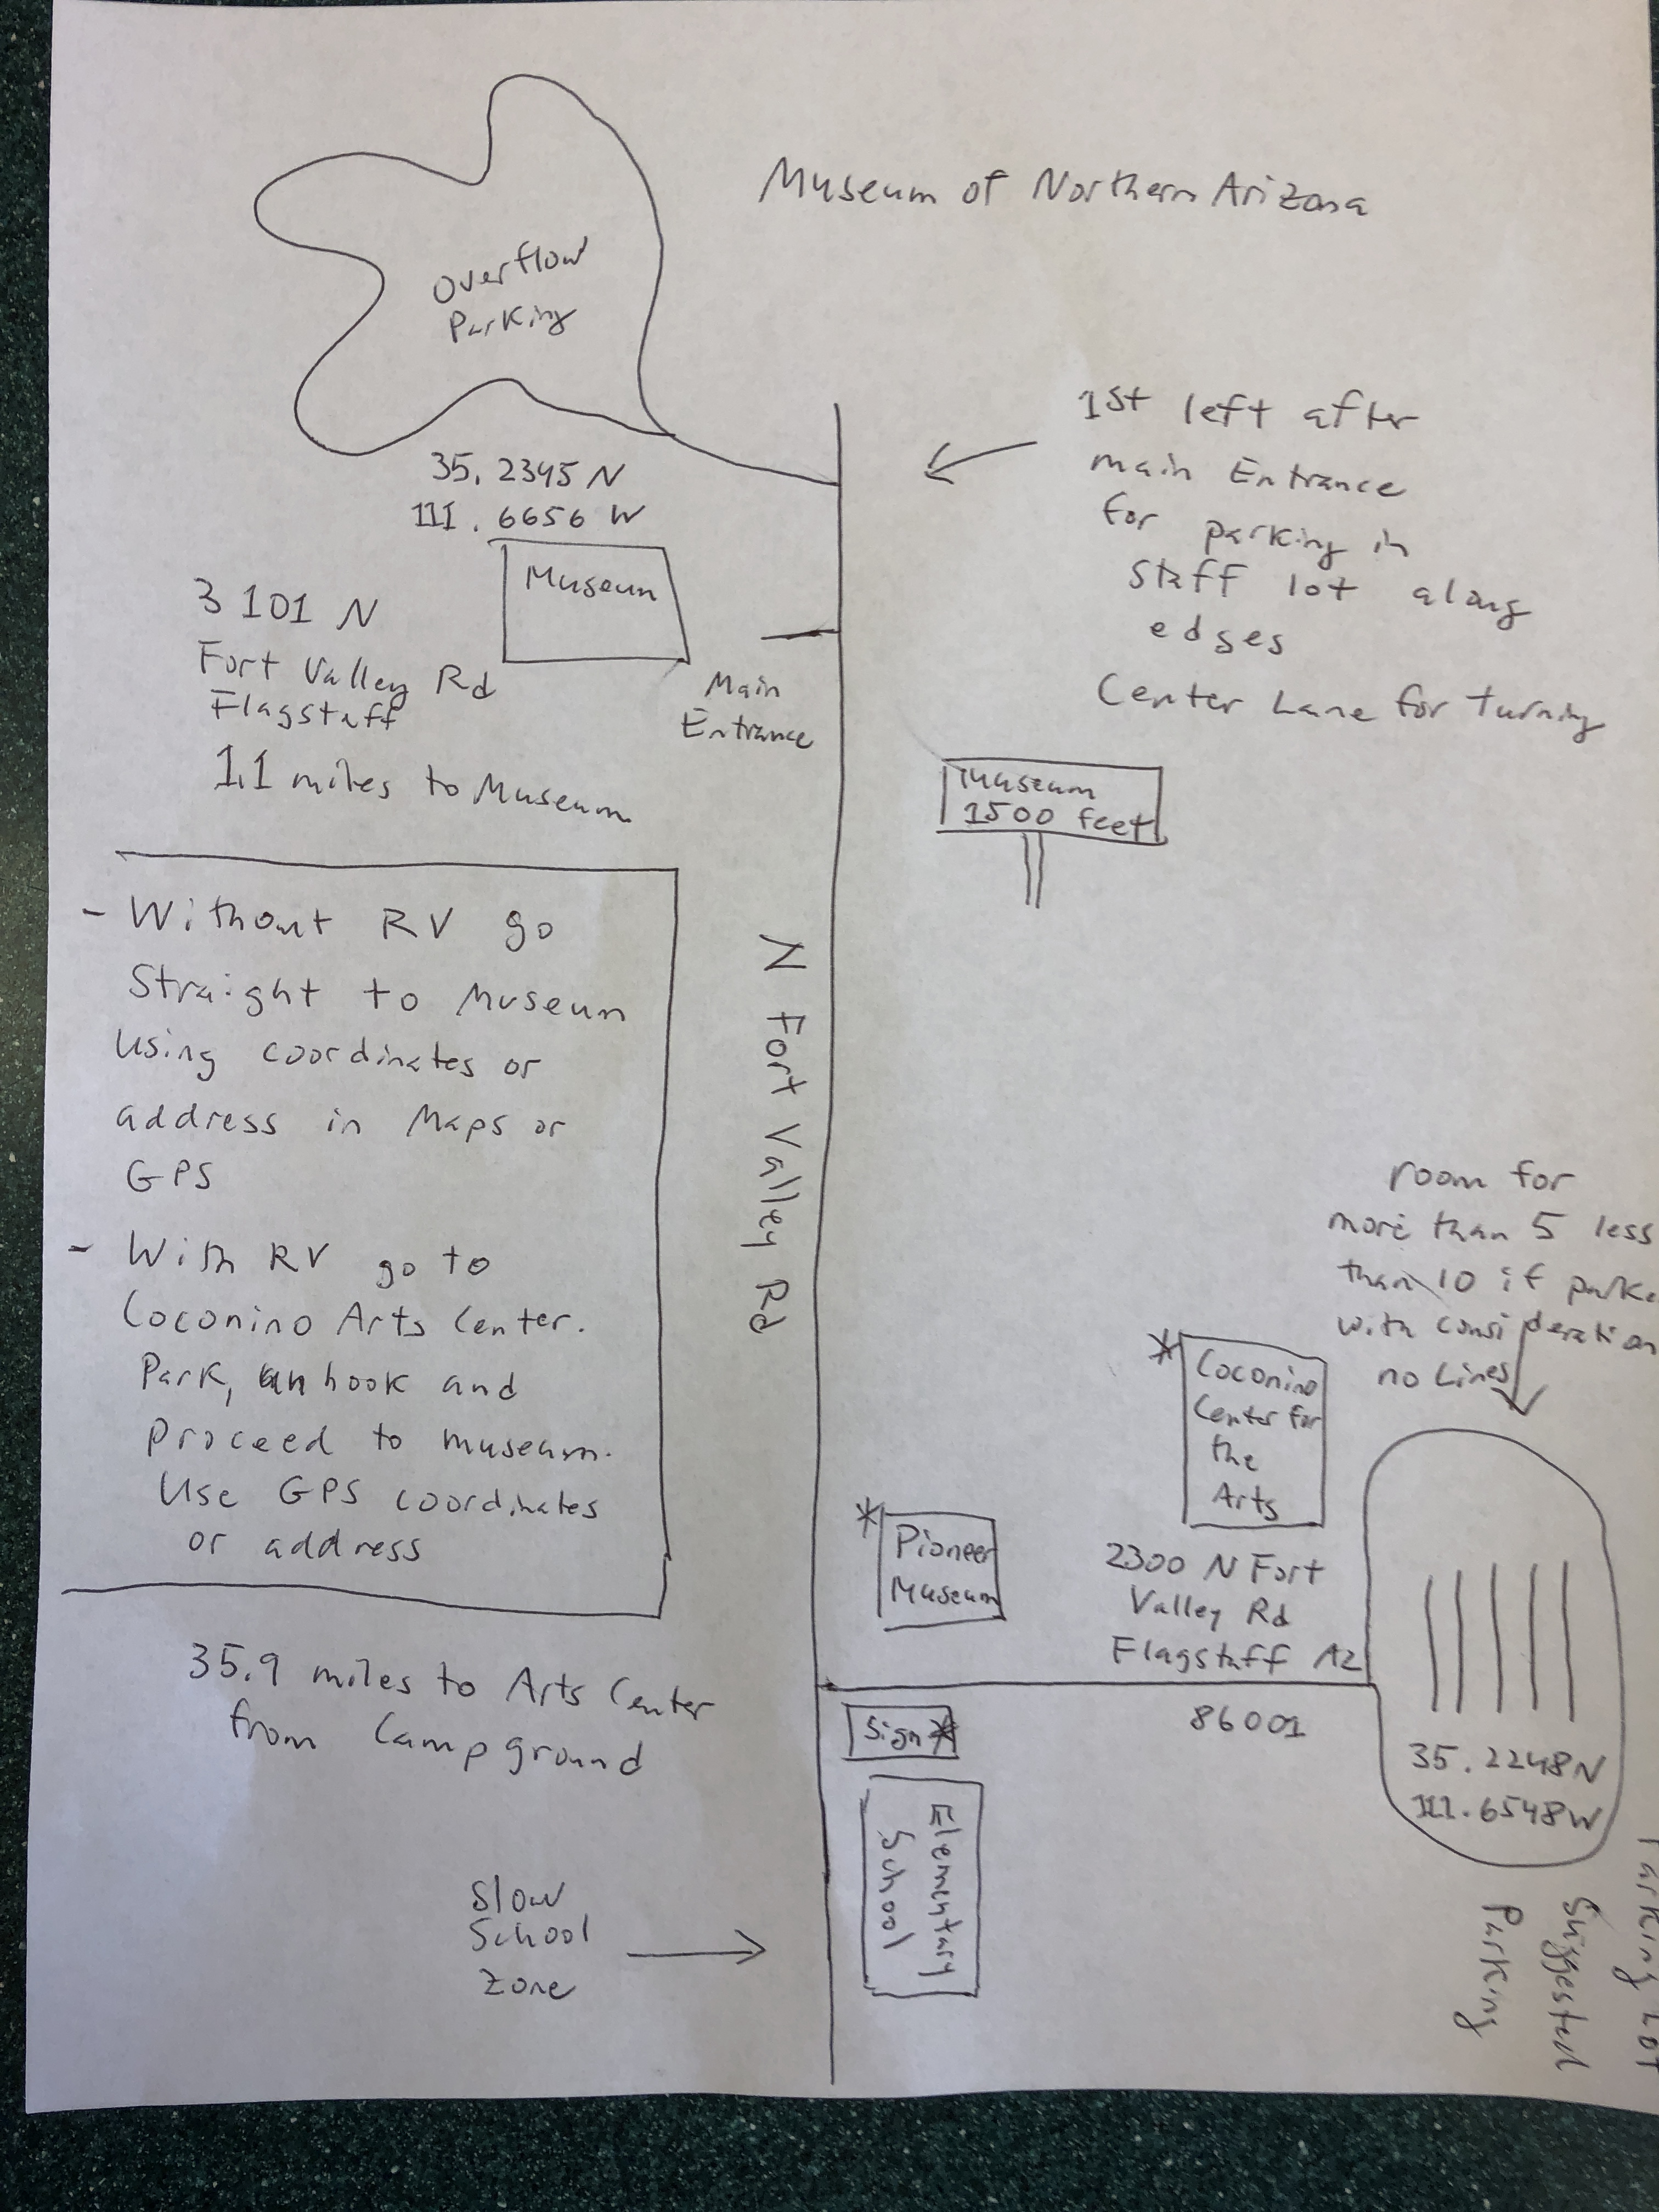 Museum of Northern Arizona
Overflow
Parking
1st left after
main Entrance
for parking in
staff lot along
edges
Center Lane for Turning
35.2345 N
111.6656 W
Museum
3101 N
Fort Valley Rd
Flagstaff
1.1 miles to Museum
Main
Entrance
Museum
1500 feet
- Without RV go
Straight to Museum
Using coordinates or
address in Maps or
GPS
- With RV go to
Coconino Arts Center.
Park, unhook and
Proceed to museum.
Use GPS coordinates
or address
N Fort Valley Rd
room for
more than 5 less
than 10 if parke
with consideration
no Lines
* Coconino
Center for
the
Arts
* Pioneer
Museum
2300 N Fort
Valley Rd
Flagstaff AZ
86001
Sign *
35.2248N
111.6548W
35.9 miles to Arts Center
from Campground
Elementary
School
Slow
School
Zone
Parking Lot
Suggested
Parking